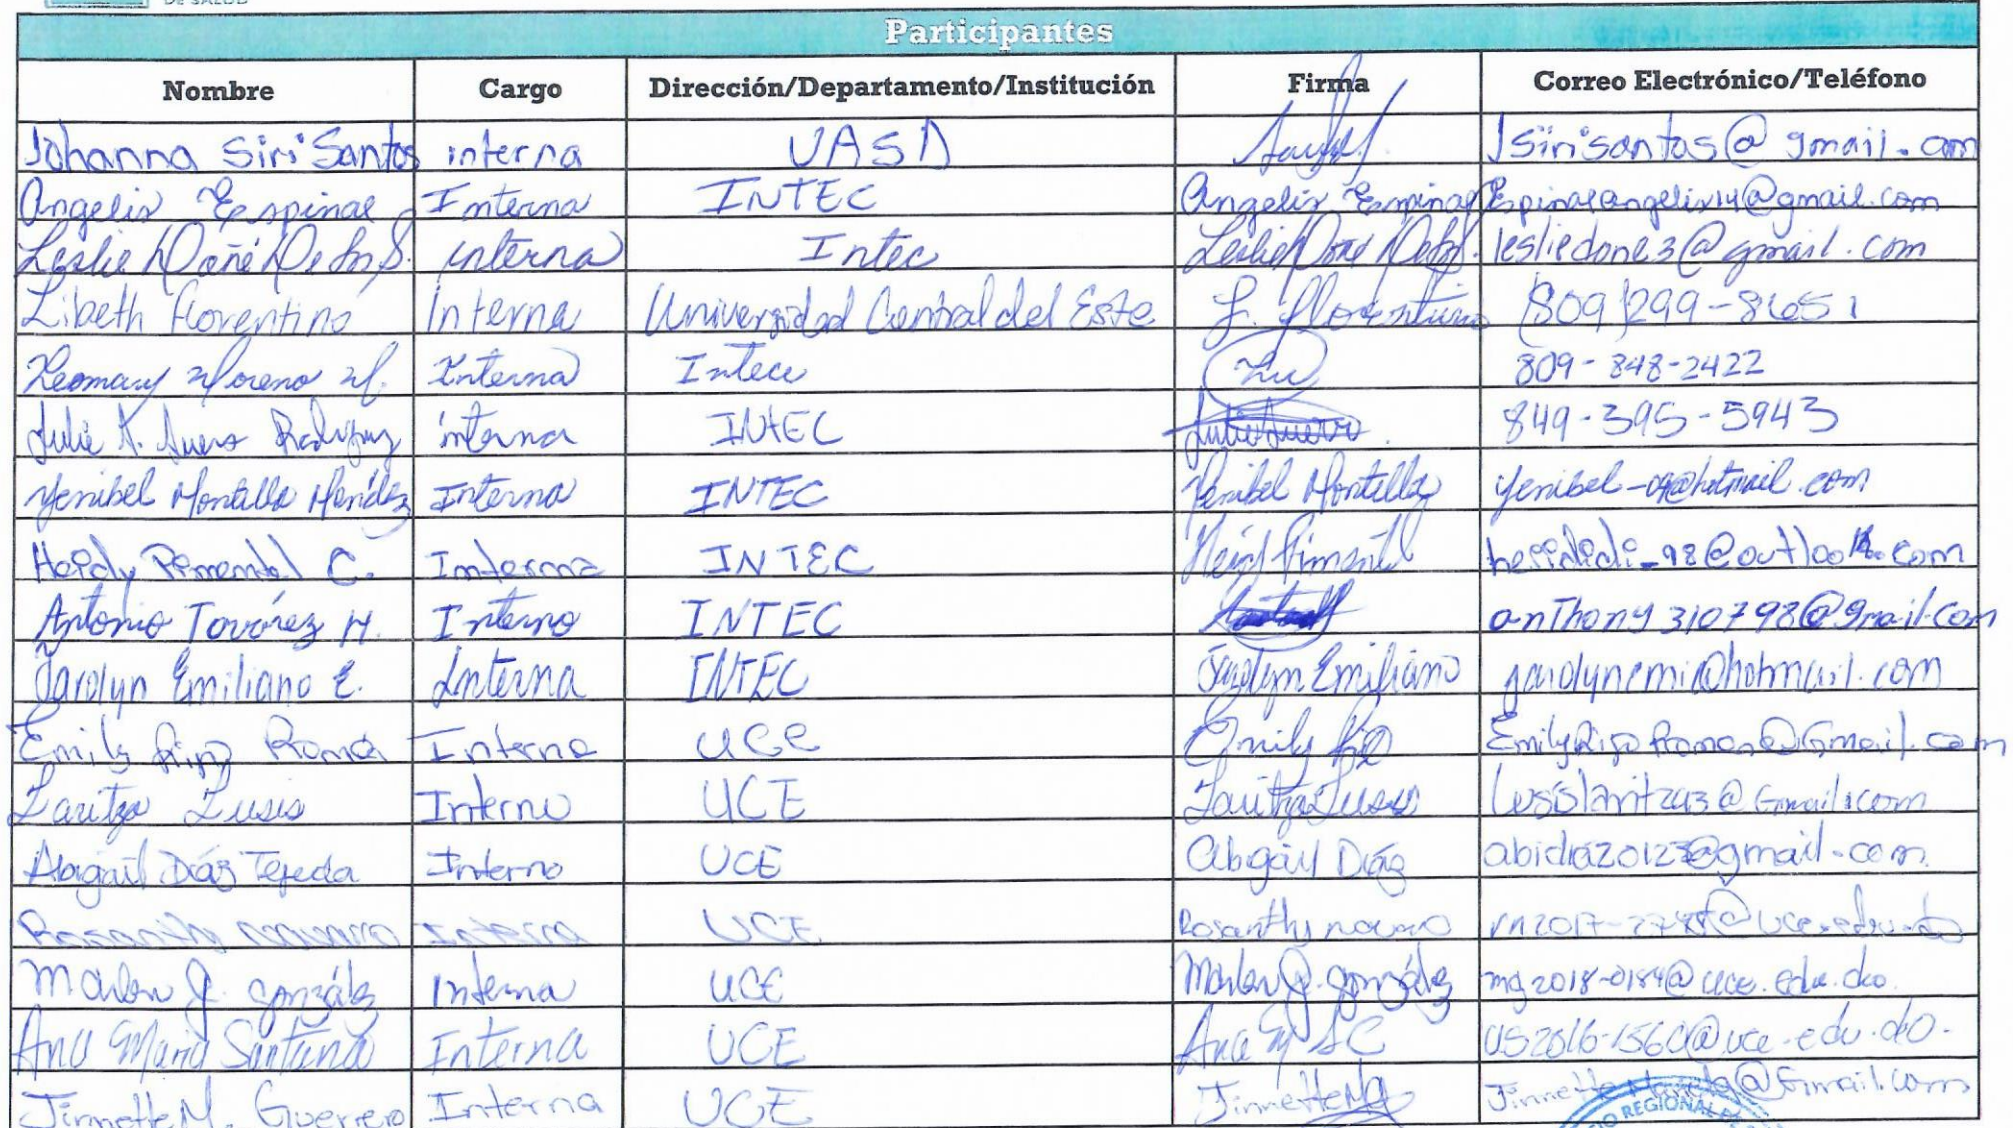 DE SALUD
Participantes
Nombre Cargo Dirección/Departamento/Institución Firma Correo Electrónico/Teléfono
Johanna Siri Santos interna UASD Jsirisantos@gmail.com
Angelix Espinal Interna INTEC Angelix Espinal Espinalangelix14@gmail.com
Leslie Doñé De los S. interna Intec Leslie Doñé De los S. lesliedone3@gmail.com
Libeth Florentino Interna Universidad Central del Este L. Florentino (809)299-8651
Leomary Moreno M. Interna Intec 809-848-2422
Julie A. Suero Rodríguez interna INTEC Julie Suero 849-395-5943
Yenibel Montilla Mendez Interna INTEC Yenibel Montilla yenibel-04@hotmail.com
Heidy Pimentel C. Interna INTEC Heidy Pimentel heididi_98@outlook.com
Antonio Tavárez H. Interno INTEC anthony310798@gmail.com
Jarolyn Emiliano E. Interna INTEC Jarolyn Emiliano jarolynemi@hotmail.com
Emily Rijo Roman Interna UCE Emily Rijo EmilyRijoRoman@Gmail.com
Laritza Lusis Interno UCE Laritza Lusis lusislaritza3@Gmail.com
Abigail Díaz Tejeda Interno UCE Abigail Díaz abidiaz0123@gmail.com
Rosanthy navarro Interna UCE Rosanthy navarro @uce.edu.do
Marlen J. González Interna UCE Marlen J. González mg2018-0184@uce.edu.do
Ana Maria Santana Interna UCE Ana M SC @uce.edu.do
Jinnette M. Guerrero Interna UCE Jinnette M @Gmail.com
REGIONAL